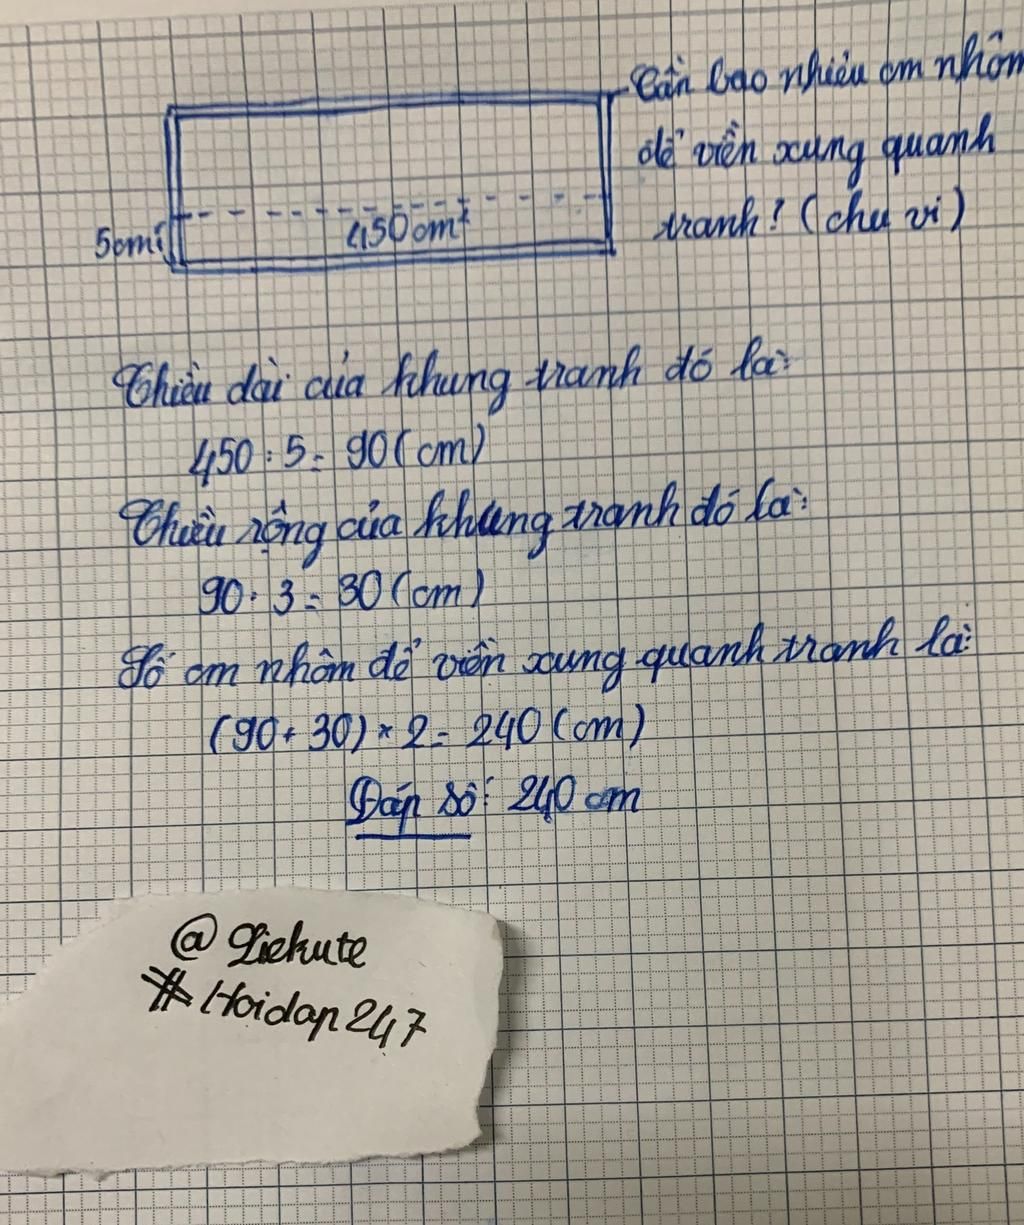 Cần bao nhiêu cm nhôm
để viền xung quanh
tranh? (chu vi)
450cm²
5cm
Chiều dài của khung tranh đó là:
450 : 5 = 90 (cm)
Chiều rộng của khung tranh đó là:
90 : 3 = 30 (cm)
Số cm nhôm để viền xung quanh tranh là:
(90 + 30) × 2 = 240 (cm)
Đáp số: 240 cm
@Liekute
#Hoidap247